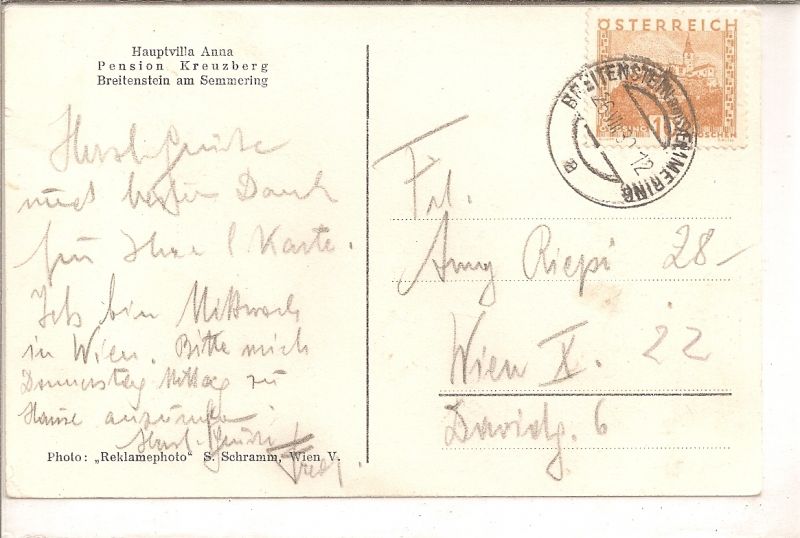 Hauptvilla Anna
Pension Kreuzberg
Breitenstein am Semmering
Herzl. Grüße
und besten Dank
für Ihre l. Karte.
Ich bin Mittwoch
in Wien. Bitte mich
Donnerstag Mittag zu
Hause anzurufen
Herzl. Grüße
Fredy.
Photo: „Reklamephoto“ S. Schramm, Wien V.
ÖSTERREICH
10
GROSCHEN
BREITENSTEIN SEMMERING
a
Frl.
Anny Riepi 28-
Wien X. 22
Davidg. 6